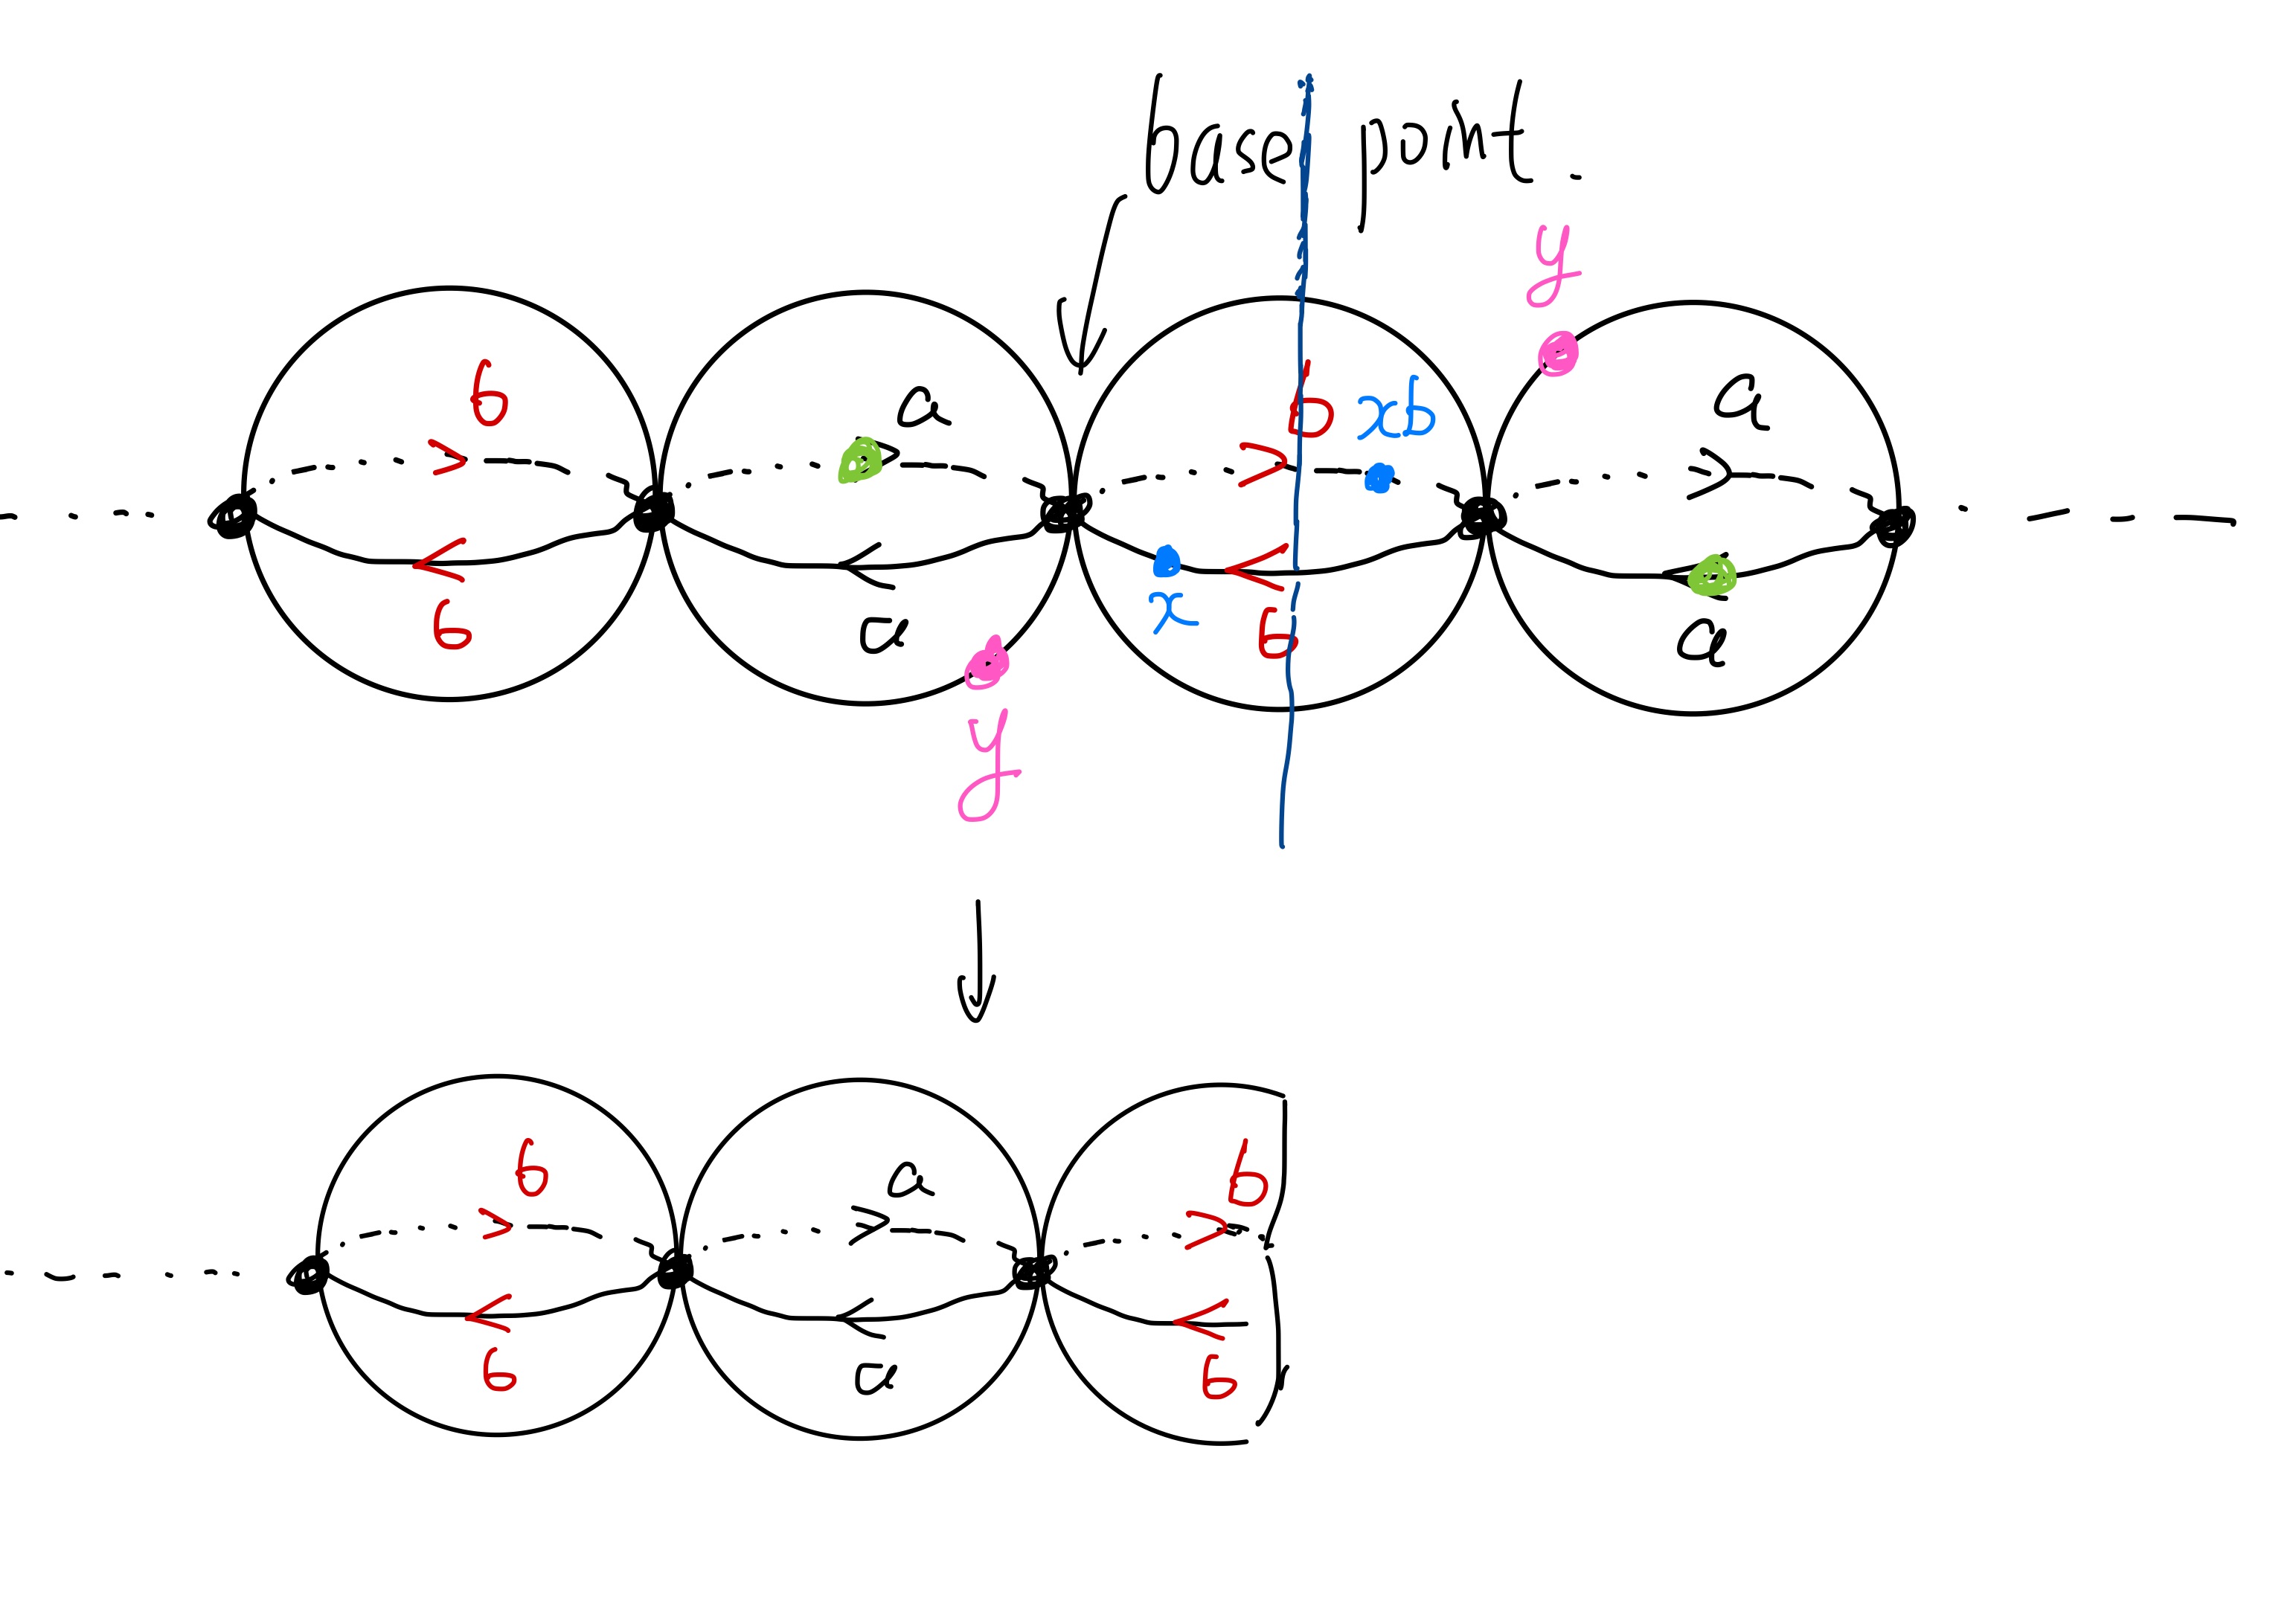 base point.
y
b a b xb a
b a x b a
y
b a b
b a b